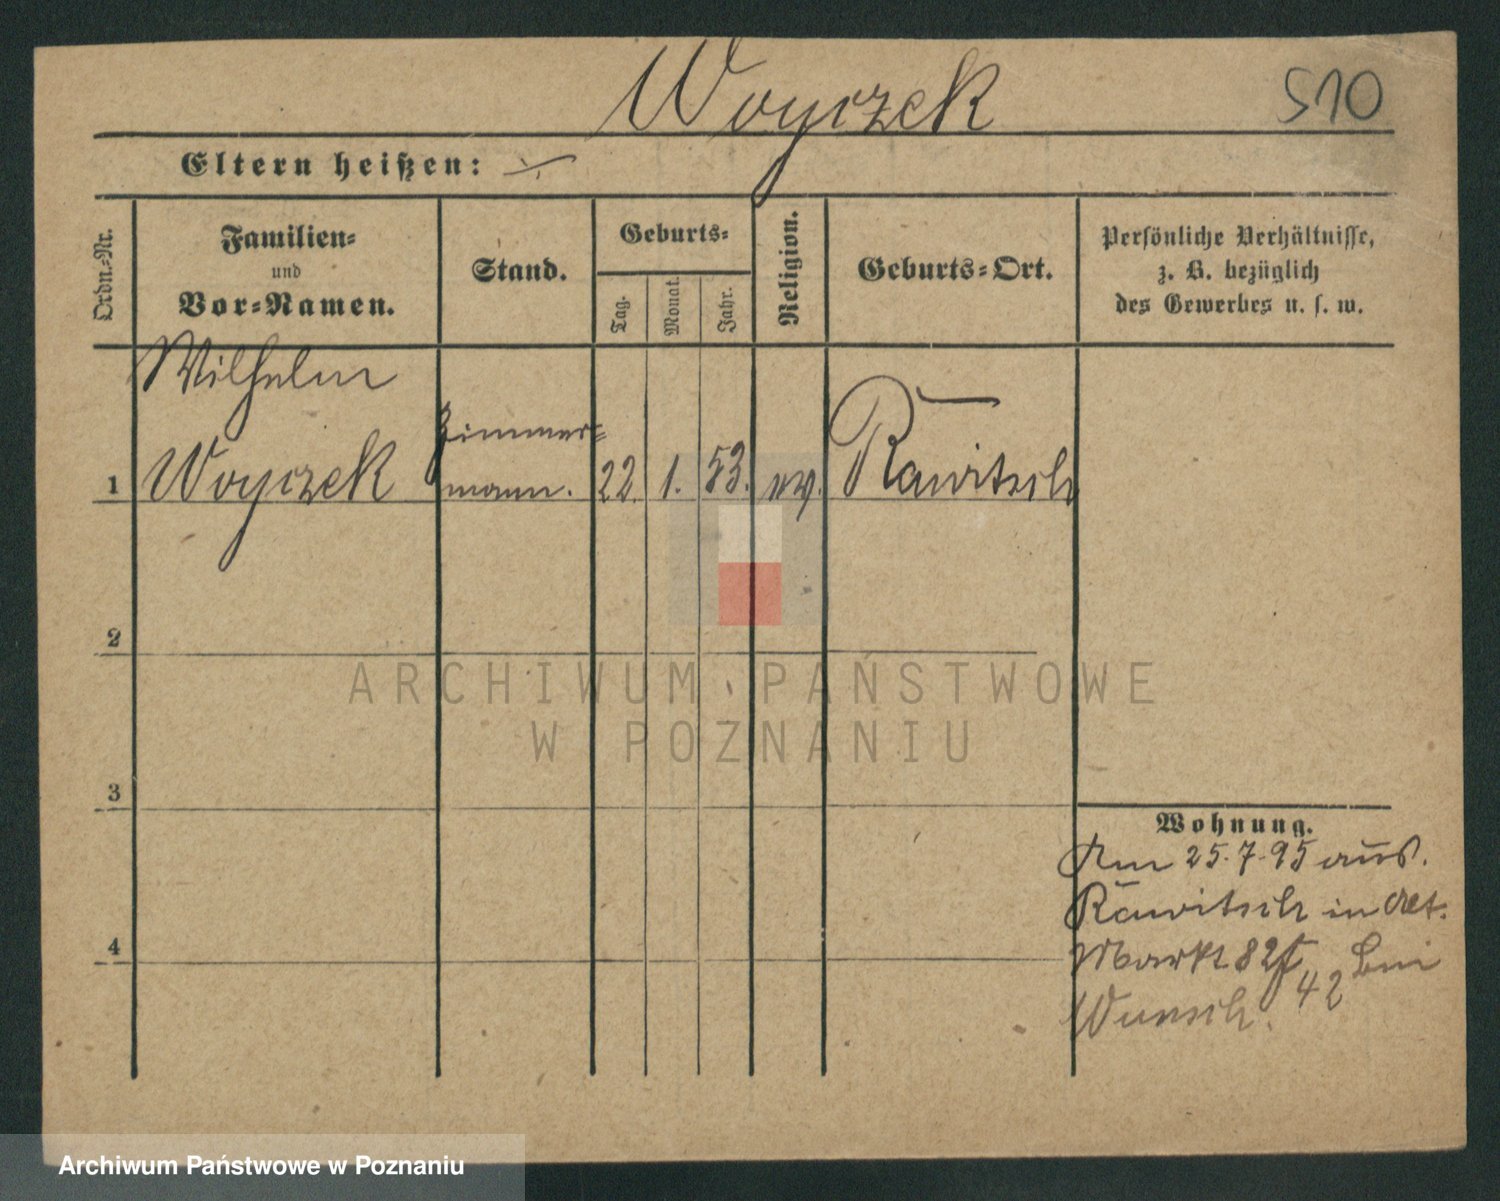 Woyczek
510
Eltern heißen:
Ordn.=Nr.
Familien=
und
Vor=Namen.
Stand.
Geburts=
Tag.
Monat.
Jahr.
Religion.
Geburts=Ort.
Persönliche Verhältnisse,
z. B. bezüglich
des Gewerbes u. s. w.
Wilhelm
Zimmer=
1 Woyczek mann. 22. 1. 53. ev. Rawitsch
2
ARCHIWUM PAŃSTWOWE
W POZNANIU
3
Wohnung.
Am 25.7.95 aus.
Rawitsch in Alt.
4
Markt 82 bei
Wunsch. 42
Archiwum Państwowe w Poznaniu